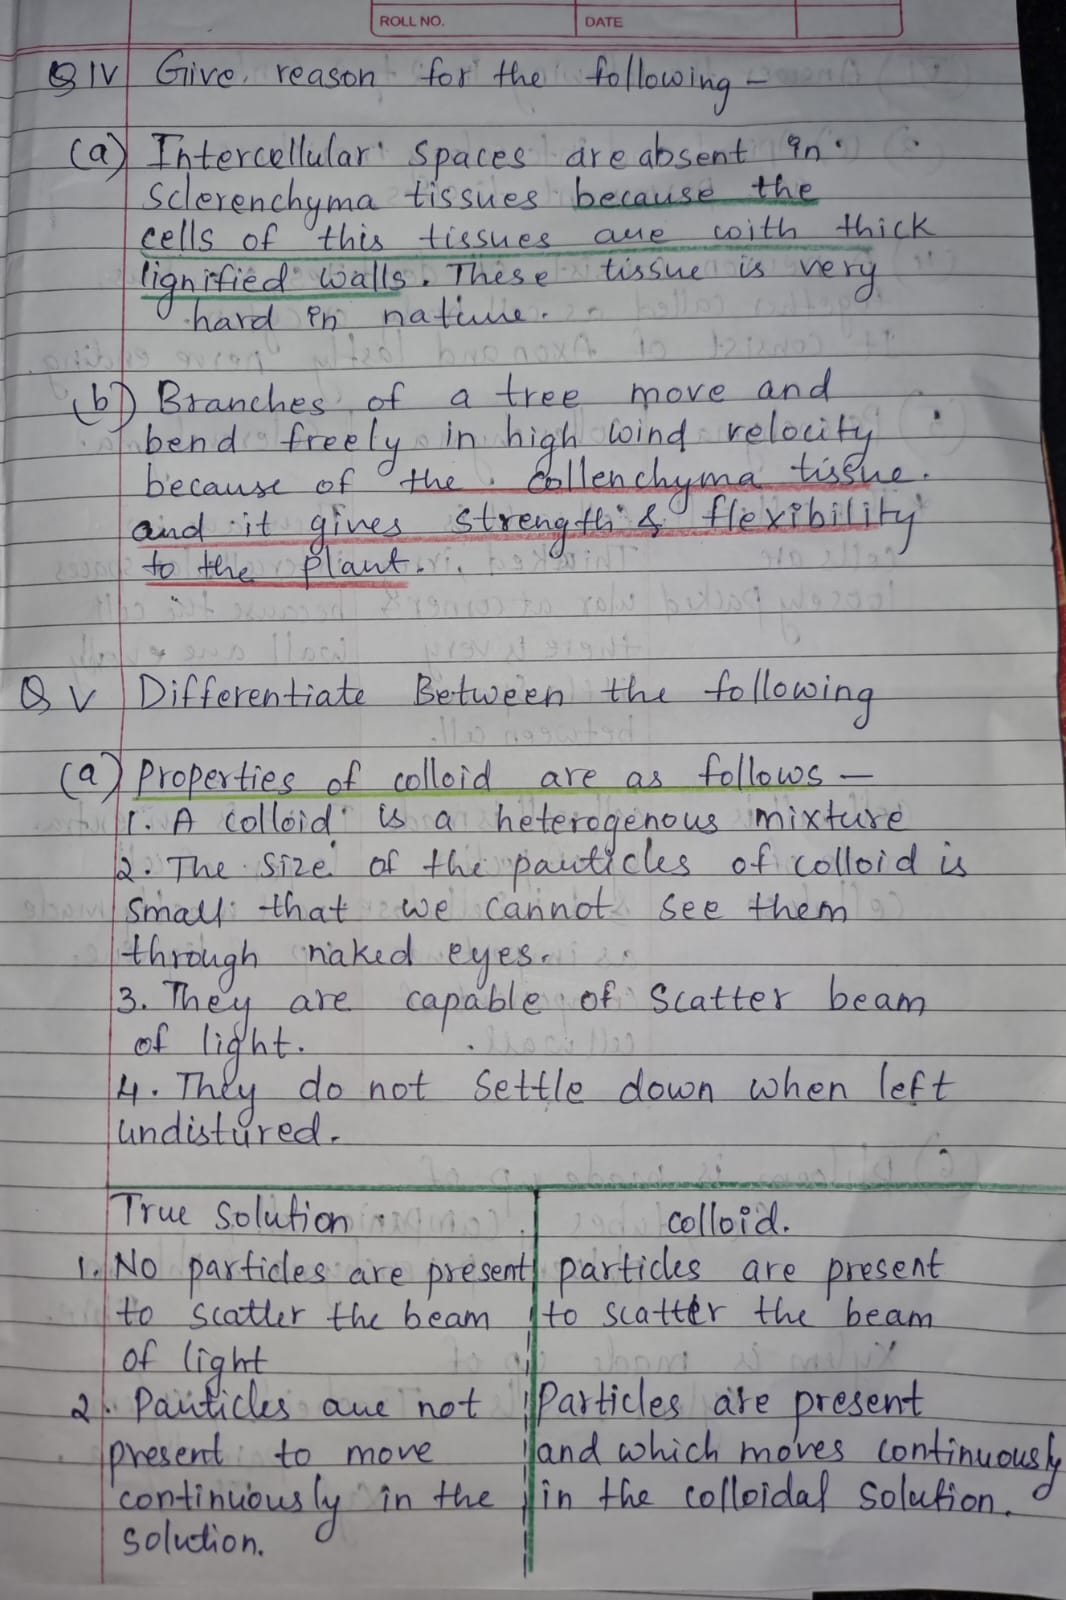 ROLL NO. DATE
Q IV Give reason for the following –
(a) Intercellular spaces are absent in
Sclerenchyma tissues because the
cells of this tissues are with thick
lignified walls. These tissue is very
hard in nature.
(b) Branches of a tree move and
bend freely in high wind velocity
because of the collenchyma tissue.
and it gives strength & flexibility
to the plant.
Q V Differentiate Between the following
(a) Properties of colloid are as follows –
1. A colloid is a heterogenous mixture
2. The size of the particles of colloid is
small that we cannot see them
through naked eyes.
3. They are capable of scatter beam
of light.
4. They do not settle down when left
undistured.
True Solution colloid.
1. No particles are present particles are present
to scatter the beam to scatter the beam
of light
2. Particles are not Particles are present
present to move and which moves continuously
continuously in the in the colloidal solution.
solution.